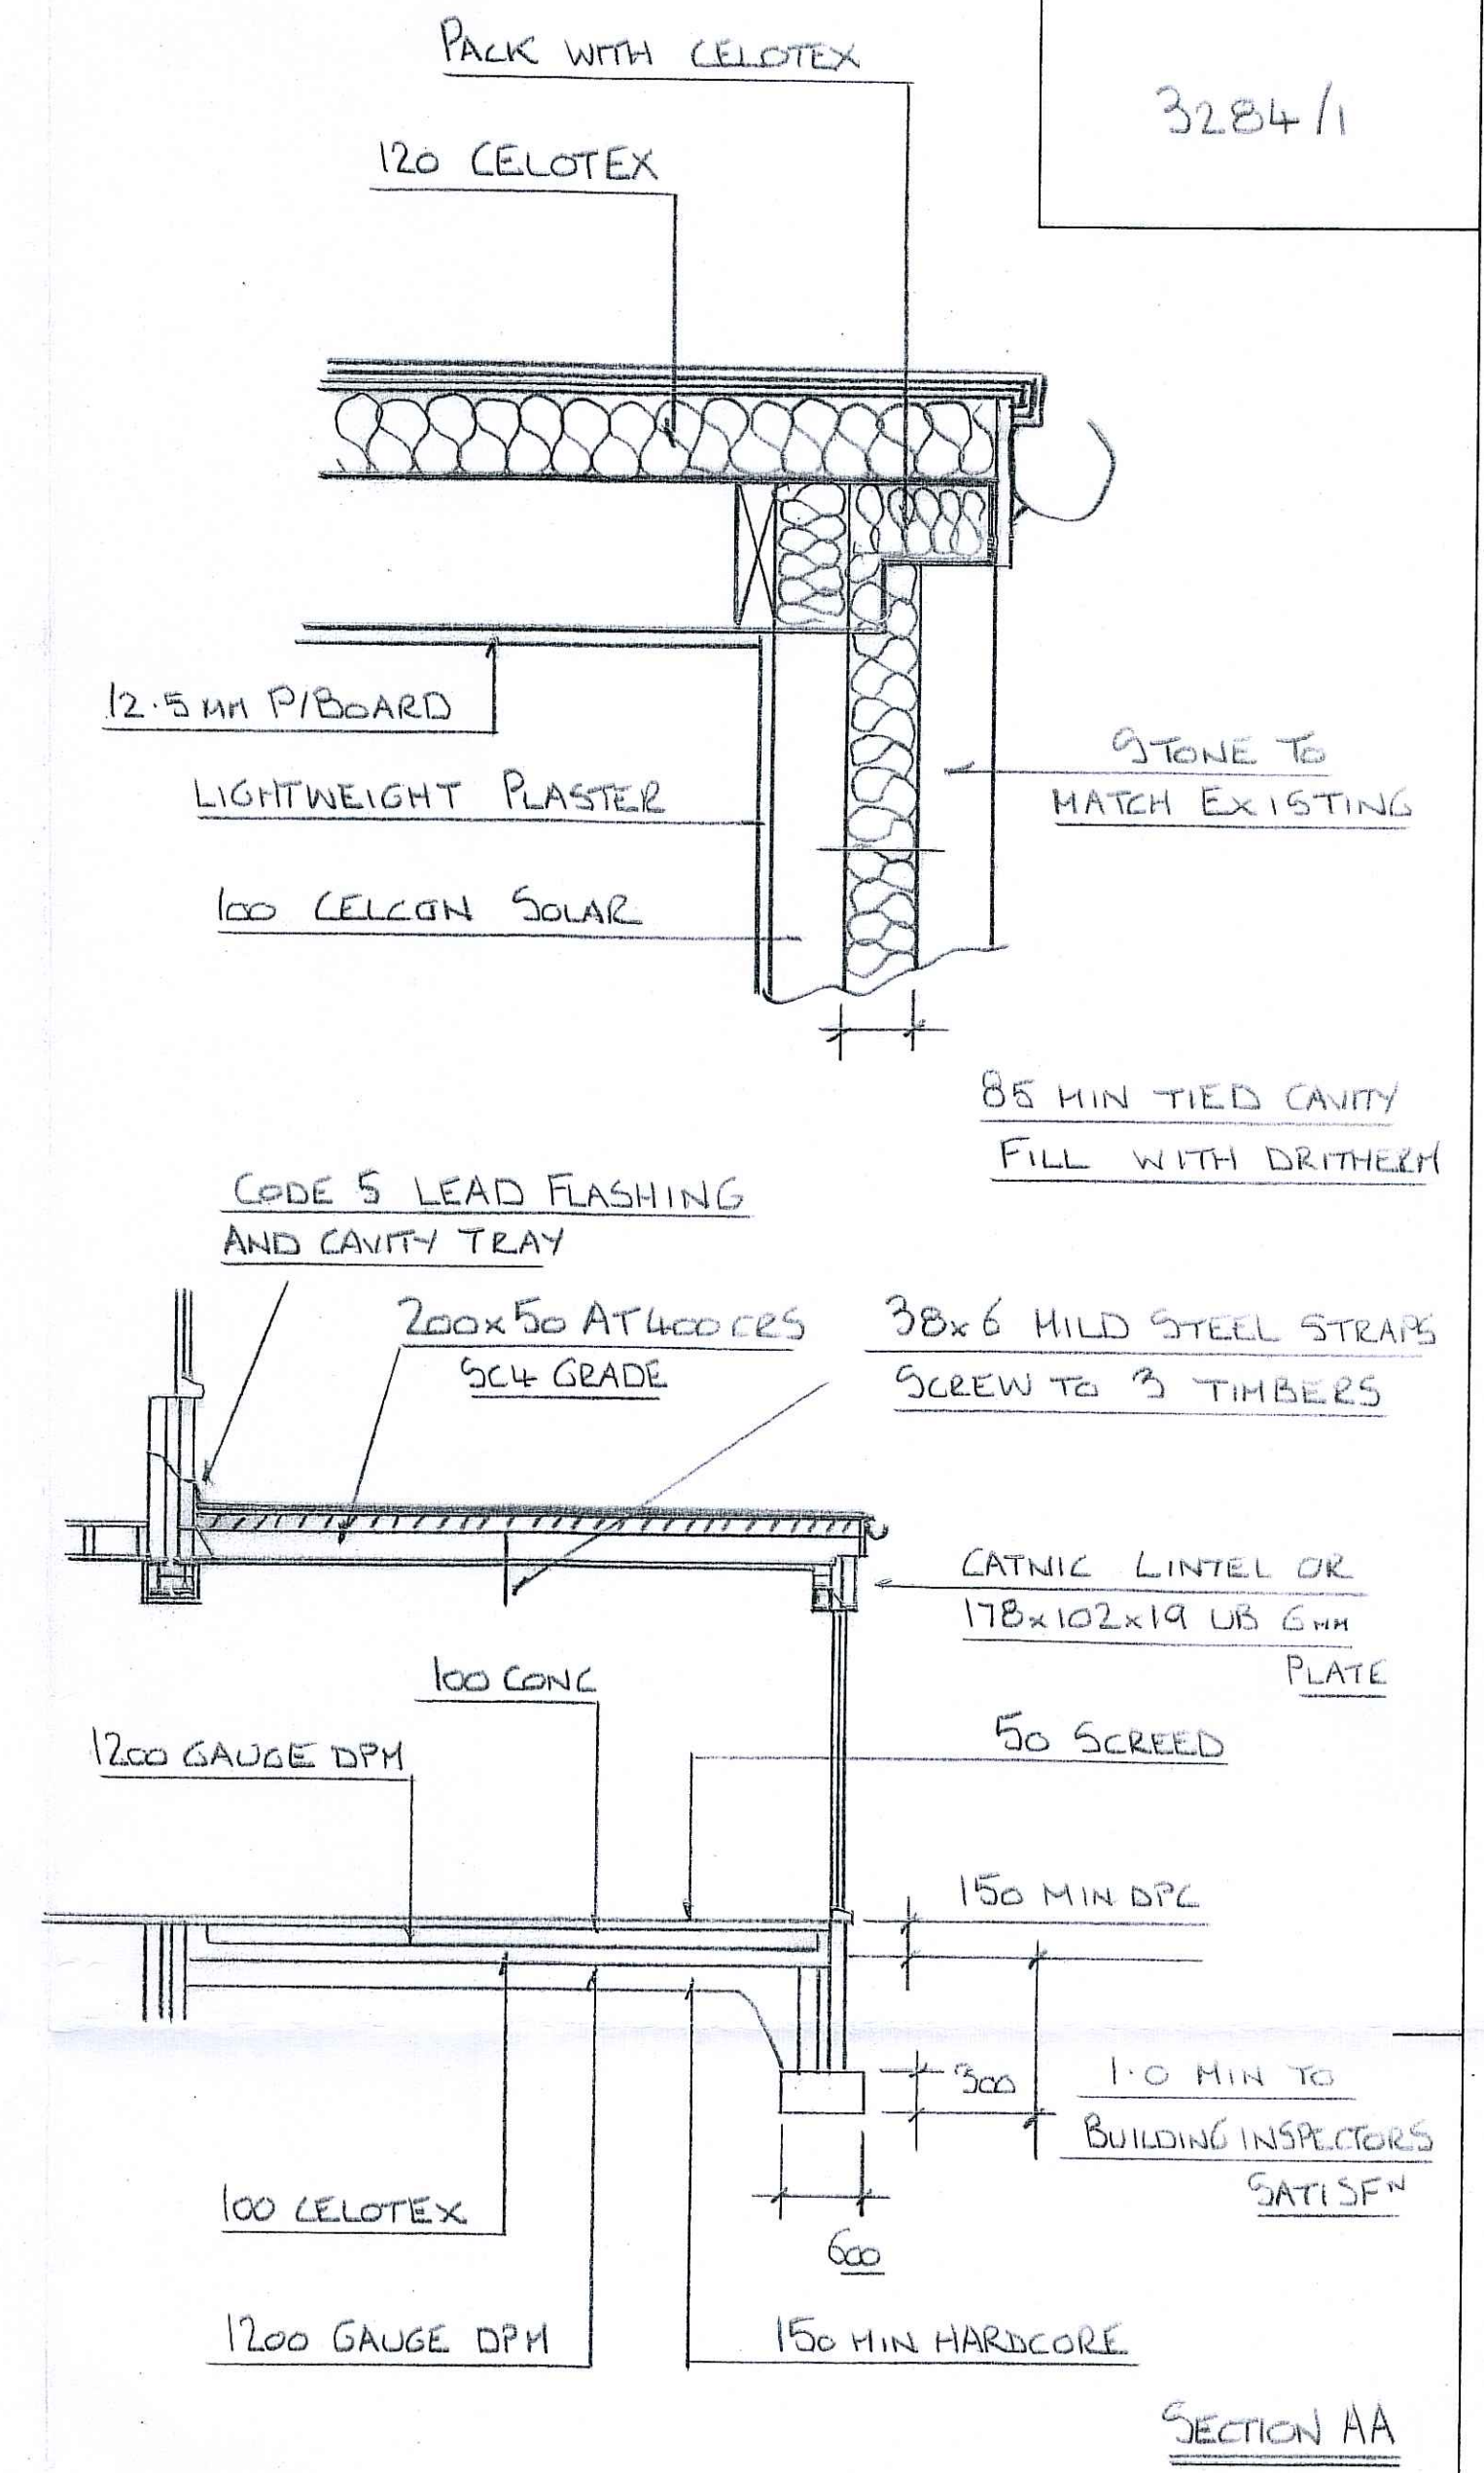 PACK WITH CELOTEX
3284/1
120 CELOTEX
12.5 MM P/BOARD
STONE TO
MATCH EXISTING
LIGHTWEIGHT PLASTER
100 CELCON SOLAR
85 MIN TIED CAVITY
FILL WITH DRITHERM
CODE 5 LEAD FLASHING
AND CAVITY TRAY
200x50 AT 400 CRS
SC4 GRADE
38x6 MILD STEEL STRAPS
SCREW TO 3 TIMBERS
CATNIC LINTEL OR
178x102x19 UB 6MM
PLATE
100 CONC
1200 GAUGE DPM
50 SCREED
150 MIN DPC
300
1.0 MIN TO
BUILDING INSPECTORS
SATISFN
100 CELOTEX
600
1200 GAUGE DPM
150 MIN HARDCORE
SECTION AA